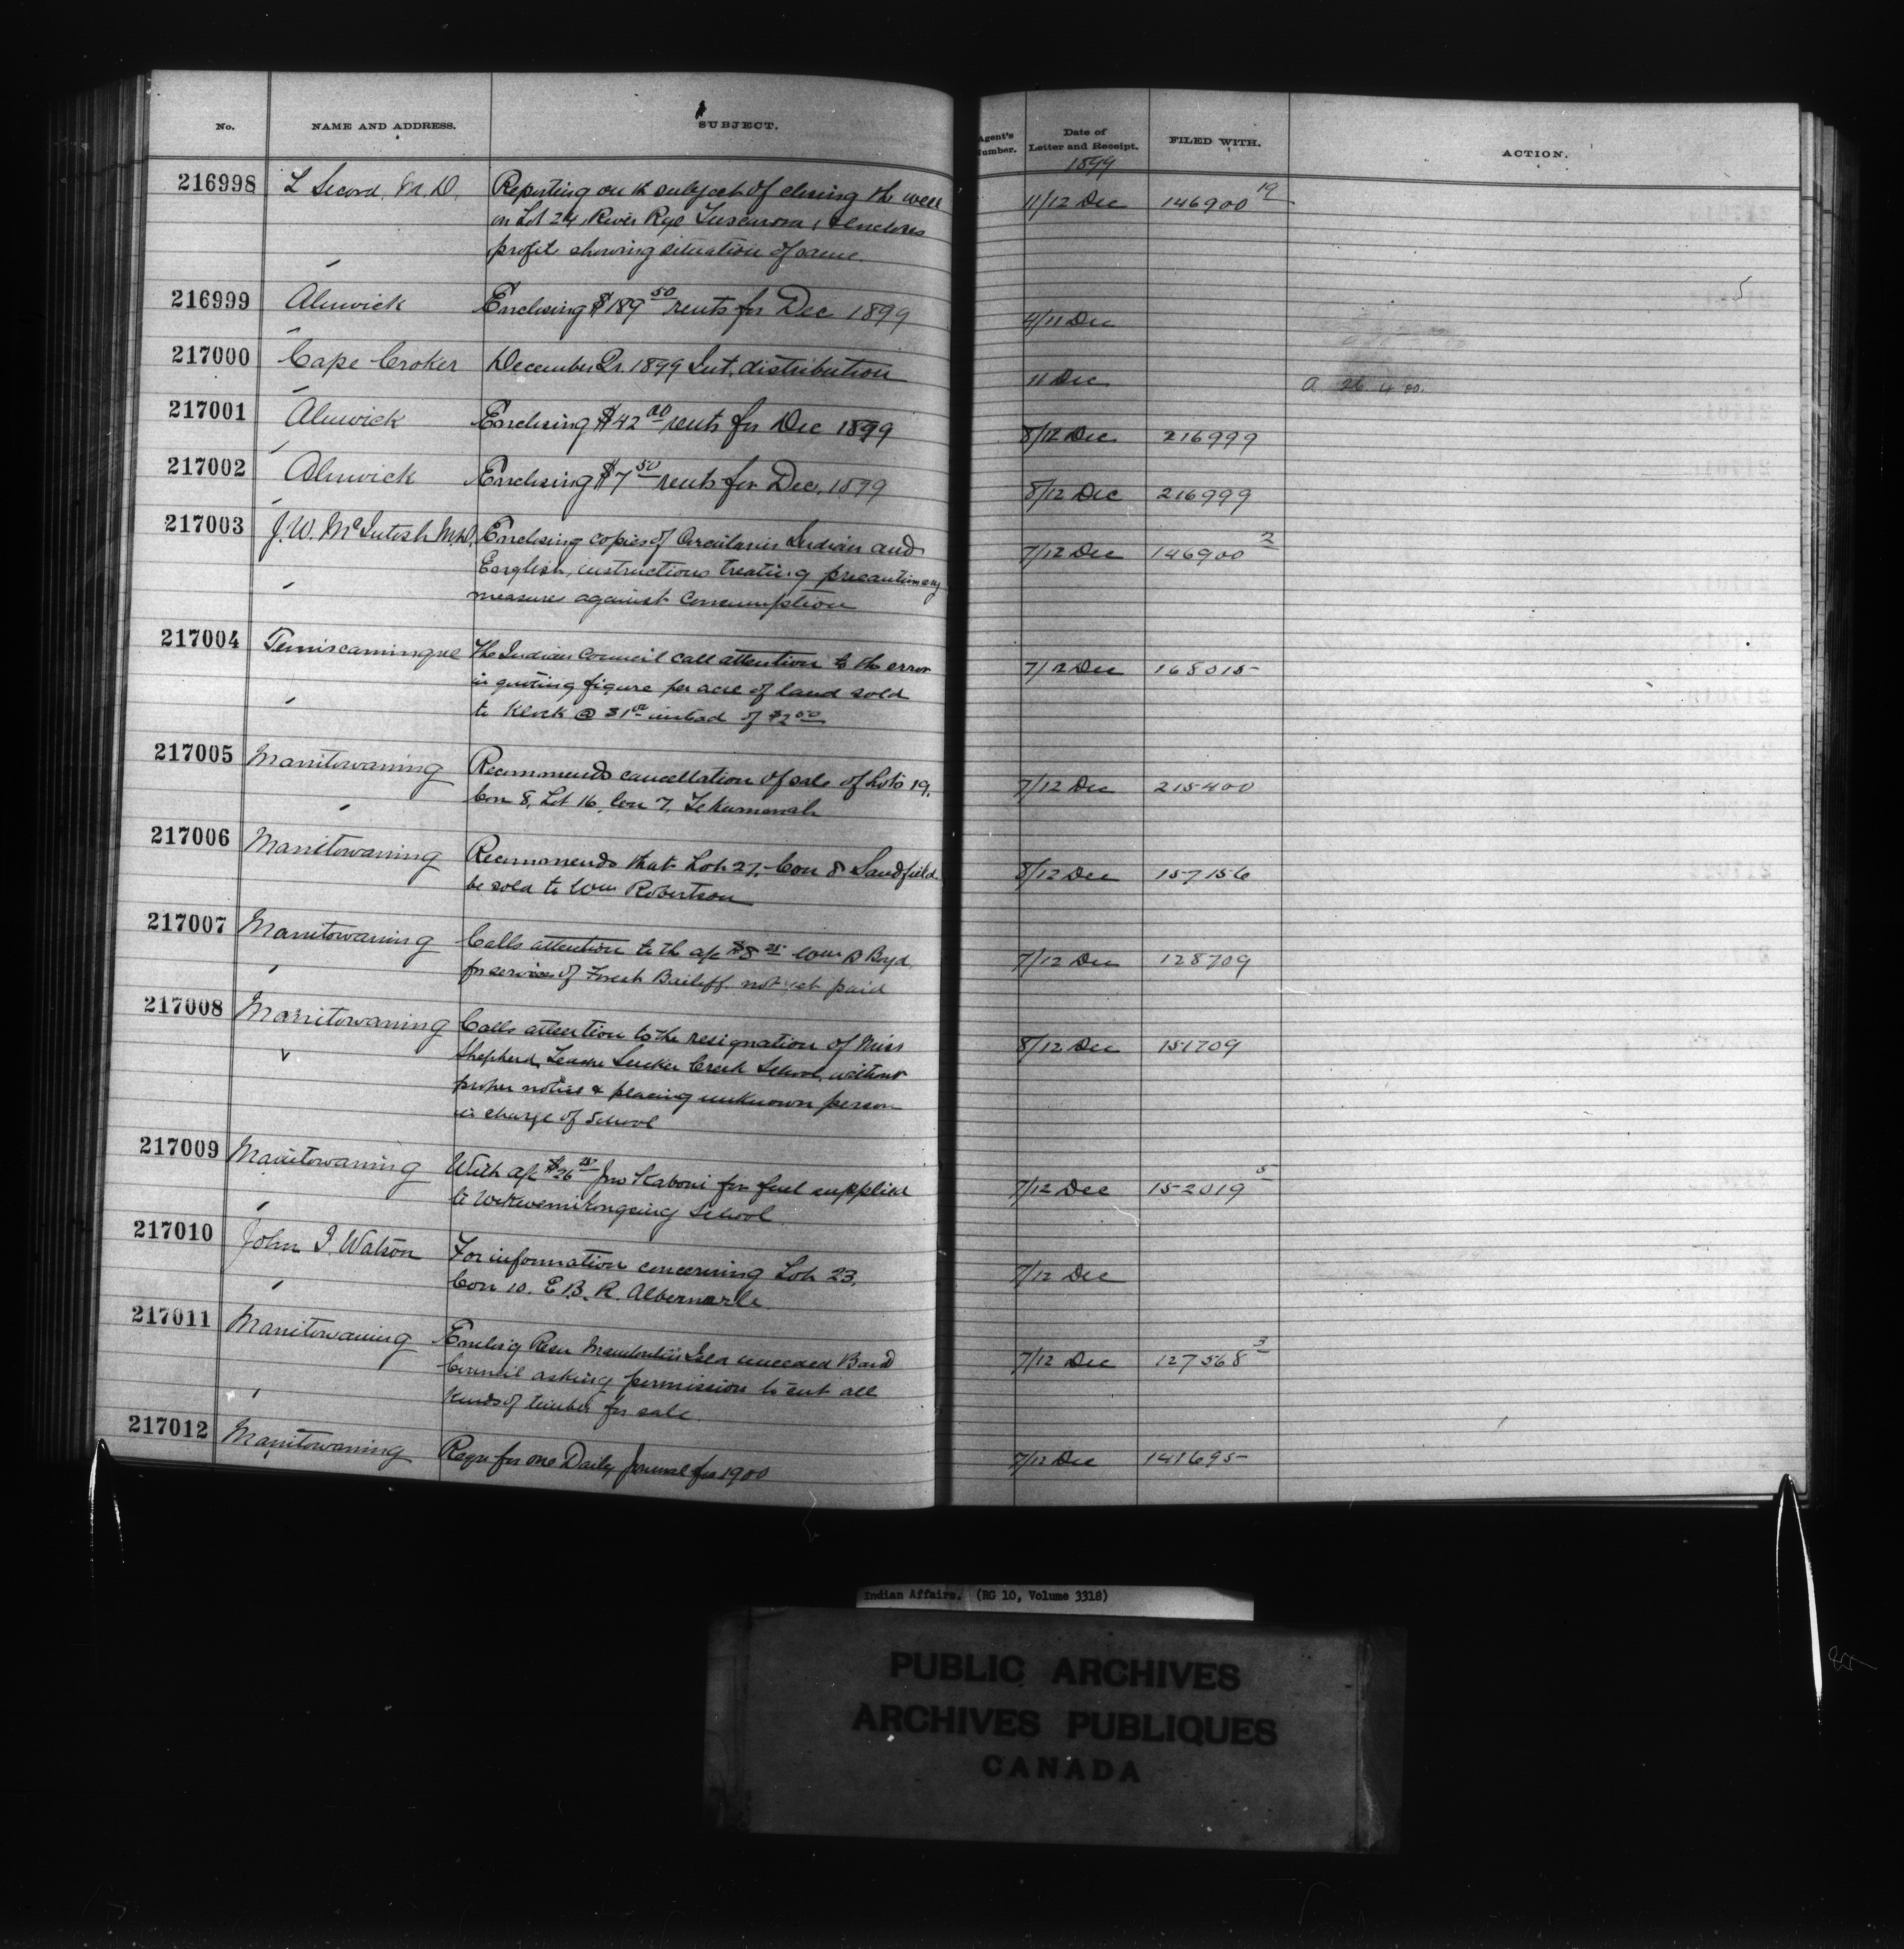 No. NAME AND ADDRESS. SUBJECT. Agent's Number. Date of Letter and Receipt. FILED WITH. ACTION.
1899
216998 L Secord, M.D. Reporting on the subject of closing the well 11/12 Dec 146900 19
on Lot 24 River Rge Tuscarora, & encloses
profile showing situation of same
216999 Alnwick Enclosing $189 50 rents for Dec 1899 4/11 Dec
217000 Cape Croker December Qr. 1899 Int. distribution 11 Dec a 26 4 00.
217001 Alnwick Enclosing $42 00 rents for Dec 1899 8/12 Dec 216999
217002 Alnwick Enclosing $7 50 rents for Dec. 1899 8/12 Dec 216999
217003 J. W. McIntosh M.D. Enclosing copies of Circulars Indian and 7/12 Dec 146900 2
English, instructions treating precautionary
measures against Consumption
217004 Temiscamingue The Indian Council call attention to the error 7/12 Dec 168015
in quoting figure per acre of land sold
to Klock @ $1 00 instead of $2 00
217005 Manitowaning Recommends cancellation of sale of Lots 19, 7/12 Dec 215400
Con 8, Lot 16, Con 7, Tehkummah
217006 Manitowaning Recommends that Lot 27, Con 8 Sandfield 8/12 Dec 157156
be sold to Wm Robertson
217007 Manitowaning Calls attention to the a/c $8 25 Wm D Boyd 7/12 Dec 128709
for services of Forest Bailiff not yet paid
217008 Manitowaning Calls attention to the resignation of Miss 8/12 Dec 151709
Shepherd, Teacher Sucker Creek School, without
proper notice & placing unknown person
in charge of School
217009 Manitowaning With a/c $26 25 Jno Kaboni for fuel supplied 7/12 Dec 152019 5
to Wikwemikongsing School
217010 John I. Watson For information concerning Lot 23, 7/12 Dec
Con 10. E.B.R. Albemarle
217011 Manitowaning Encling Resn Manitoulin Isld unceded Band 7/12 Dec 127568 3
Council asking permission to cut all
kinds of timber for sale.
217012 Manitowaning Reqn for one Daily Journal for 1900 7/12 Dec 141695
Indian Affairs. (RG 10, Volume 3318)
PUBLIC ARCHIVES
ARCHIVES PUBLIQUES
CANADA